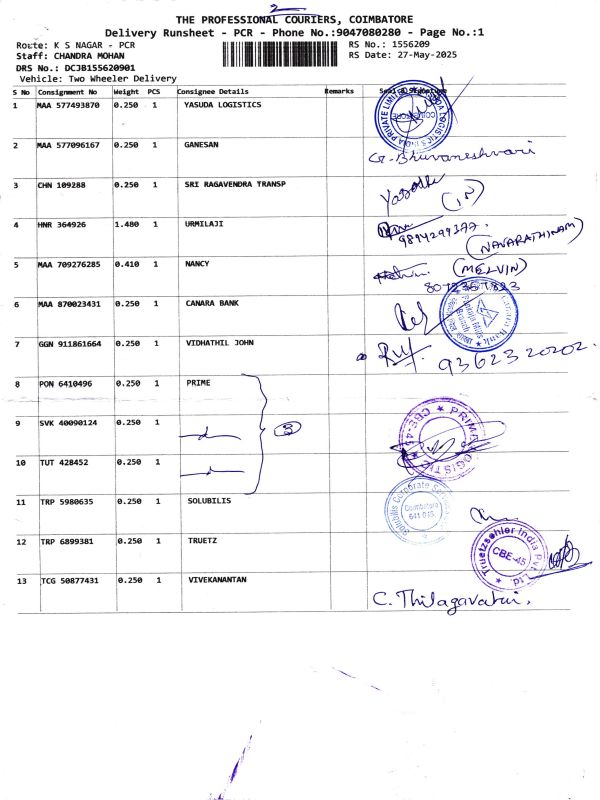 2
THE PROFESSIONAL COURIERS, COIMBATORE
Delivery Runsheet - PCR - Phone No.:9047080280 - Page No.:1
Route: K S NAGAR - PCR RS No.: 1556209
Staff: CHANDRA MOHAN RS Date: 27-May-2025
DRS No.: DCJB155620901
Vehicle: Two Wheeler Delivery
S No Consignment No Weight PCS Consignee Details Remarks Seal & Signature
1 MAA 577493870 0.250 1 YASUDA LOGISTICS
2 MAA 577096167 0.250 1 GANESAN G. Bhuvaneshvari
3 CHN 109288 0.250 1 SRI RAGAVENDRA TRANSP
4 HNR 364926 1.480 1 URMILAJI 9894299377. (NAVARATHINAM)
5 MAA 709276285 0.410 1 NANCY (MELVIN)
6 MAA 870023431 0.250 1 CANARA BANK
7 GGN 911861664 0.250 1 VIDHATHIL JOHN 9362320202.
8 PON 6410496 0.250 1 PRIME
9 SVK 40090124 0.250 1 3
10 TUT 428452 0.250 1
PRIMA LOGISTIC CBE-45
11 TRP 5980635 0.250 1 SOLUBILIS Solubilis Corporate Services Coimbatore 641 045
12 TRP 6899381 0.250 1 TRUETZ Truetzschler India Pvt. Ltd. CBE-45
13 TCG 50877431 0.250 1 VIVEKANANTAN C. Thilagavathi.